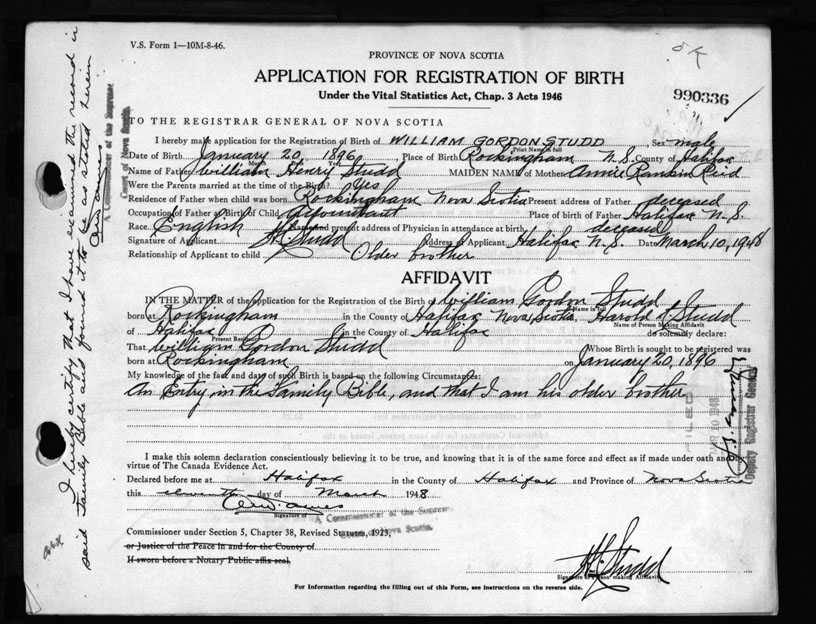 V.S. Form 1—10M-8-46.
PROVINCE OF NOVA SCOTIA
OK
APPLICATION FOR REGISTRATION OF BIRTH
990336
Under the Vital Statistics Act, Chap. 3 Acts 1946
TO THE REGISTRAR GENERAL OF NOVA SCOTIA
I hereby make application for the Registration of Birth of WILLIAM GORDON STUDD Sex male
Print Name in full
Date of Birth January 20, 1896 Place of Birth Rockingham N.S. County of Halifax
Name of Father William Henry Studd MAIDEN NAME of Mother Annie Rankin Reid
Were the Parents married at the time of the Birth? Yes
Residence of Father when child was born Rockingham Nova Scotia Present address of Father deceased
Occupation of Father at Birth of Child Accountant Place of birth of Father Halifax N.S.
Race English present address of Physician in attendance at birth deceased
Signature of Applicant H. Studd Address of Applicant Halifax N.S. Date March 10, 1948
Relationship of Applicant to child Older brother
AFFIDAVIT
IN THE MATTER of the application for the Registration of the Birth of William Gordon Studd
Name in full
born at Rockingham in the County of Halifax Nova Scotia, Harold Studd
Name of Person Making Affidavit
of Halifax in the County of Halifax do solemnly declare:
Present Residence
That William Gordon Studd Whose Birth is sought to be registered was
born at Rockingham on January 20, 1896
My knowledge of the fact and date of such Birth is based on the following Circumstances:
An Entry in the Family Bible, and that I am his older brother
I make this solemn declaration conscientiously believing it to be true, and knowing that it is of the same force and effect as if made under oath and by
virtue of The Canada Evidence Act.
Declared before me at Halifax in the County of Halifax and Province of Nova Scotia
this eleventh day of March 1948
Signature of
A Commissioner of the Supreme
Court of Nova Scotia.
Commissioner under Section 5, Chapter 38, Revised Statutes, 1923,
or Justice of the Peace in and for the County of
If sworn before a Notary Public affix seal.
H. Studd
Signature of Person making Affidavit
For Information regarding the filling out of this Form, see instructions on the reverse side.
I hereby certify that I have examined the record in
said Family Bible and found it to be as stated herein
A Commissioner of the Supreme
Court of Nova Scotia.
FILED
MAR 10 1948
Deputy Registrar General